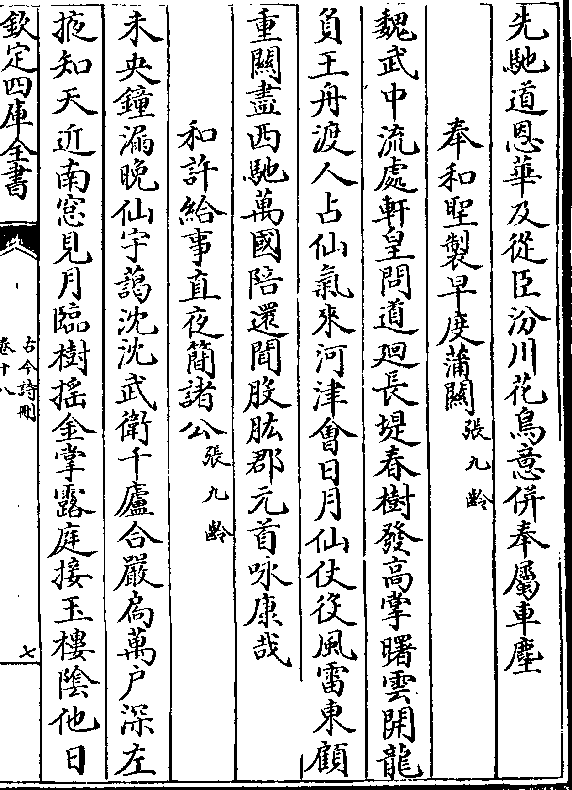 先馳道恩華及從臣汾川花鳥意併奉屬車塵
奉和聖製早度蒲關張九齡
魏武中流處軒皇問道廻長堤春樹發高掌曙雲開龍
負王舟渡人占仙氣來河津會日月仙仗役風雷東顧
重關盡西馳萬國陪還聞股肱郡元首咏康哉
和許給事直夜簡諸公張九齡
未央鐘漏晚仙宇藹沈沈武衛千廬合嚴扃萬户深左
掖知天近南窓見月臨樹搖金掌露庭接玉樓陰他日
欽定四庫全書
古今詩刪
卷十八
七